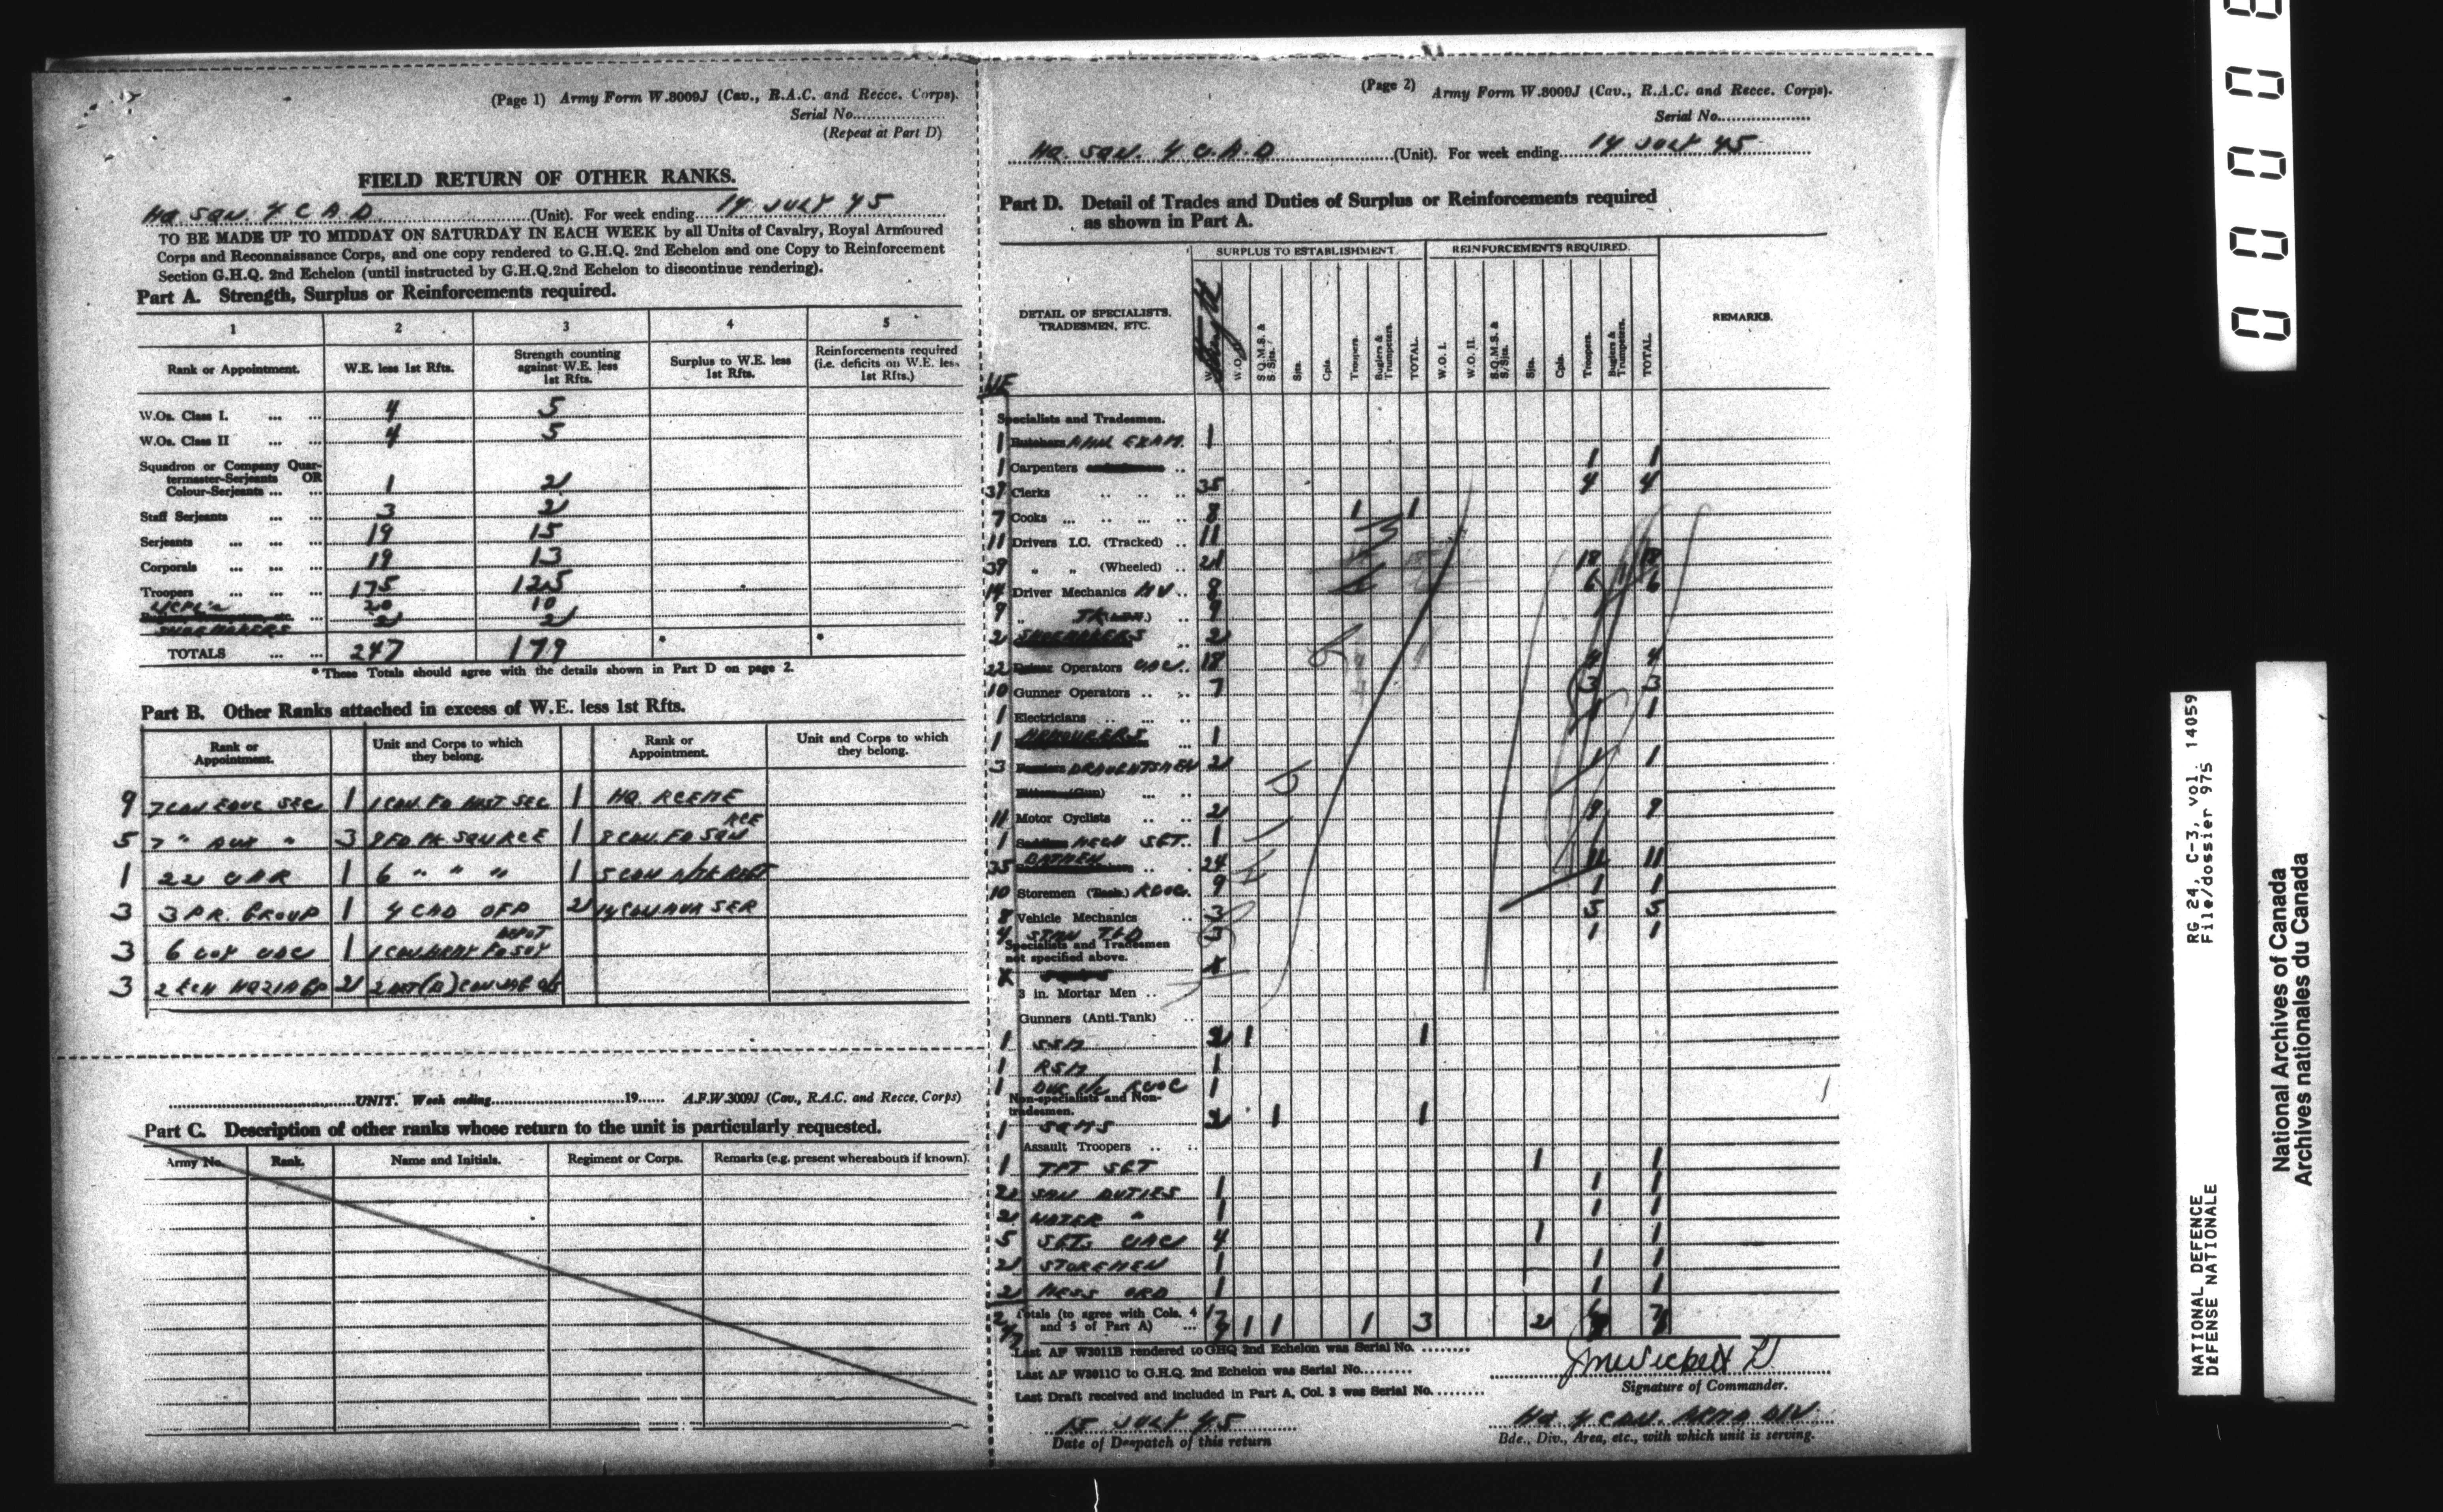 (Page 1) Army Form W.3009J (Cav., R.A.C. and Recce. Corps).
Serial No...................
(Repeat at Part D)
FIELD RETURN OF OTHER RANKS.
HQ SQN 4 C A D (Unit). For week ending 14 JULY 45
TO BE MADE UP TO MIDDAY ON SATURDAY IN EACH WEEK by all Units of Cavalry, Royal Armoured
Corps and Reconnaissance Corps, and one copy rendered to G.H.Q. 2nd Echelon and one Copy to Reinforcement
Section G.H.Q. 2nd Echelon (until instructed by G.H.Q.2nd Echelon to discontinue rendering).
Part A. Strength, Surplus or Reinforcements required.
1 2 3 4 5
Rank or Appointment. W.E. less 1st Rfts. Strength counting against W.E. less 1st Rfts. Surplus to W.E. less 1st Rfts. Reinforcements required (i.e. deficits on W.E. less 1st Rfts.)
W.Os. Class I. 4 5
W.Os. Class II 4 5
Squadron or Company Quar-
termaster-Serjeants OR
Colour-Serjeants 1 2
Staff Serjeants 3 2
Serjeants 19 15
Corporals 19 13
Troopers 175 125
L/CPL'S 20 10
SHOEMAKERS 2 2
TOTALS 247 179 * *
* These Totals should agree with the details shown in Part D on page 2.
Part B. Other Ranks attached in excess of W.E. less 1st Rfts.
Rank or Appointment. Unit and Corps to which they belong. Rank or Appointment. Unit and Corps to which they belong.
9 7 CDN EDUC SEC 1 1 CDN FD HIST SEC 1 HQ. RCEME
5 7 " AUX " 3 9 FD PK SQN RCE 1 8 CDN. FD SQN RCE
1 22 CAR 1 6 " " " 1 5 CDN A/TK REGT
3 3 P.R. GROUP 1 4 CAD OFP 2
3 6 COY 1 DEPOT
3 2 ECH HQ 21 A GP 2
UNIT. Week ending 19 A.F.W.3009J (Cav., R.A.C. and Recce. Corps)
Part C. Description of other ranks whose return to the unit is particularly requested.
Army No. Rank. Name and Initials. Regiment or Corps. Remarks (e.g. present whereabouts if known).
(Page 2) Army Form W.3009J (Cav., R.A.C. and Recce. Corps).
Serial No...................
HQ. SQN. 4 C.A.D (Unit). For week ending 14 JULY 45
Part D. Detail of Trades and Duties of Surplus or Reinforcements required
as shown in Part A.
SURPLUS TO ESTABLISHMENT. REINFORCEMENTS REQUIRED.
DETAIL OF SPECIALISTS, TRADESMEN, ETC. Strength S.Q.M.S. & S/Sjts. Sjts. Cpls. Troopers. Buglers & Trumpeters. TOTAL. W.O. I. W.O. II. S.Q.M.S. & S/Sjts. Sjts. Cpls. Troopers. Buglers & Trumpeters. TOTAL. REMARKS.
WE
Specialists and Tradesmen.
1 AMN EXAM. 1
1 Carpenters 1 1
39 Clerks 35 4 4
7 Cooks 8 1 1
11 Drivers I.C. (Tracked) 11
39 " " (Wheeled) 21 18 18
14 Driver Mechanics MV 8 6 6
9 " TK 9
2 SHOEMAKERS 2
22 Operators 18 4 4
10 Gunner Operators 7 3 3
1 Electricians 1 1
1 ARMOURERS 1
3 DRAUGHTSMEN 2 1 1
11 Motor Cyclists 2 9 9
1 MECH SGT. 1
35 BATMEN 24 11 11
10 Storemen (Tech.) RCOC. 9 1 1
8 Vehicle Mechanics 3 5 5
4 3 1 1
Specialists and Tradesmen
not specified above.
3 in. Mortar Men
Gunners (Anti-Tank)
1 SSM 2 1 1
1 RSM 1
1 RCOC 1
Non-specialists and Non-
tradesmen.
1 SQMS 2 1 1
Assault Troopers
1 TPT SGT 1 1
2 SAN DUTIES 1 1 1
2 WATER " 1 1 1
5 SGTS CAC 4 1 1
2 STOREMEN 1 1 1
2 MESS ORD 1 1 1
Totals (to agree with Cols. 4
and 5 of Part A) 1 1 1 3 2
Last AF W3011B rendered to GHQ 2nd Echelon was Serial No. ........
Last AF W3011C to G.H.Q. 2nd Echelon was Serial No.........
Last Draft received and included in Part A, Col. 3 was Serial No. ........
Signature of Commander.
15 JULY 45
Date of Despatch of this return
HQ 4 CDN. ARMD DIV
Bde., Div., Area, etc., with which unit is serving.
NATIONAL DEFENCE RG 24, C-3, vol. 14059
DÉFENSE NATIONALE File/dossier 975
National Archives of Canada
Archives nationales du Canada